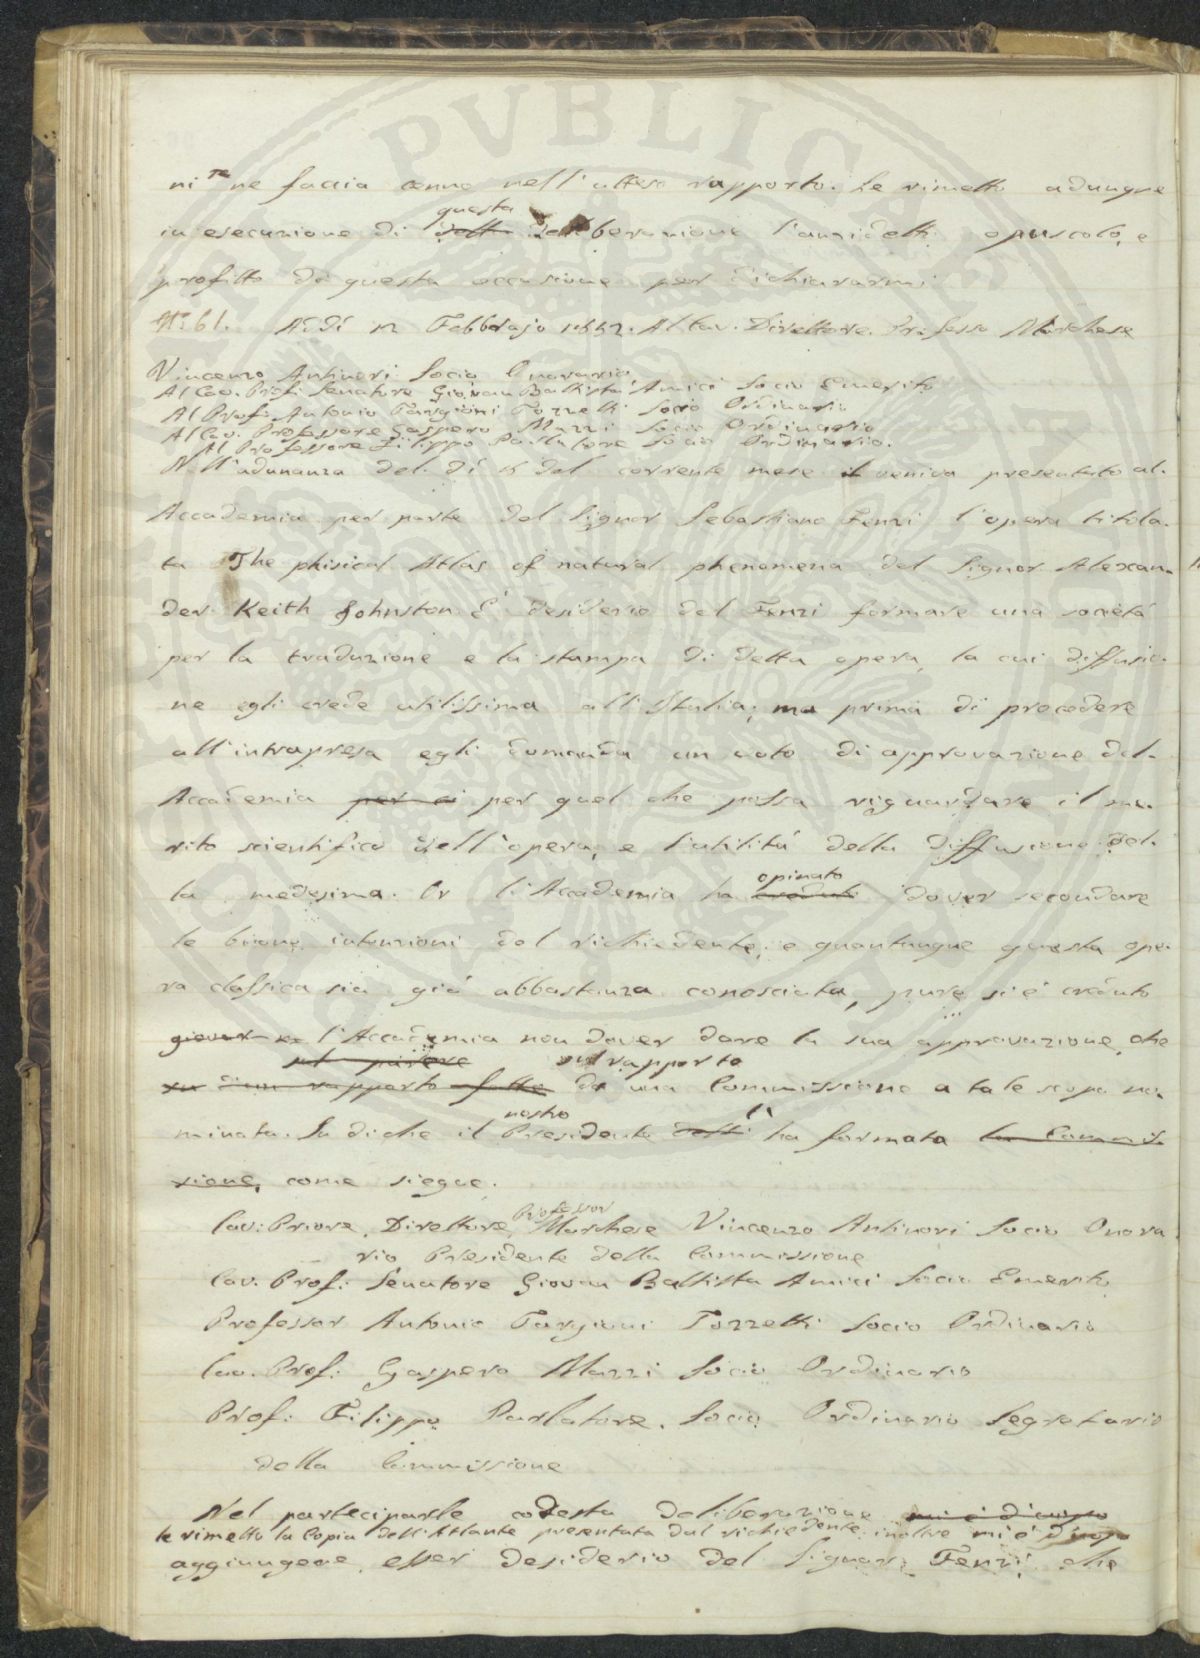 ni ne faccia cenno nell'atteso rapporto. Le rimetto adunque
questa
in esecuzione di detta deliberazione l'anzidetto opuscolo, e
profitto di questa occasione per dichiararmi
N: 61. Addì 12 Febbrajo 1852. Al Cav. Direttore Professo Marchese
Vincenzo Antinori Socio Onorario
Al Cav. Prof. Senatore Giovan Battista Amici Socio Emerito
Al Prof. Antonio Targioni Tozzetti Socio Ordinario
Al Cav. Professore Gaspero Mazzi Socio Ordinario
Al Professore Filippo Parlatore Socio Ordinario.
Nell'adunanza del dì del corrente mese veniva presentato al-
Accademia per parte del Signor Sebastiano Fenzi l'opera titola-
ta The phisical Atlas of natural phenomena del Signor Alexan-
der Keith Johnston. E' desiderio del Fenzi formare una società
per la traduzione e la stampa di detta opera, la cui diffusio-
ne egli crede utilissima all'Italia; ma prima di procedere
all'intrapresa egli domanda un voto di approvazione del-
Accademia per ci per quel che possa riguardare il me-
rito scientifico dell'opera, e l'utilità della diffusione del-
opinato
la medesima. Or l'Accademia ha creduto dover secondare
le buone intenzioni del richiedente; e quantunque questa ope-
ra classica sia già abbastanza conosciuta, pure si è creduto
giovar l'Accademia non dover dare la sua approvazione, che
sul parere sul rapporto
su d'un rapporto fatto da una Commissione a tale scopo no-
nostro l'
minata. In di che il Presidente detti ha formata la Commis-
sione, come siegue.
Professor
Cav: Priore, Direttore, Marchese Vincenzo Antinori Socio Onora-
rio Presidente della Commissione
Cav. Prof: Senatore Giovan Battista Amici Socio Emerito
Professor Antonio Targioni Tozzetti Socio Ordinario
Cav. Prof: Gaspero Mazzi Socio Ordinario
Prof: Filippo Parlatore. Socio Ordinario Segretario
della Commissione
Nel parteciparle codesta deliberazione mi è d'uopo
le rimetto la Copia dell'Atlante presentata dal richiedente: inoltre mi è d'uopo
aggiungere esser desiderio del Signor Fenzi che